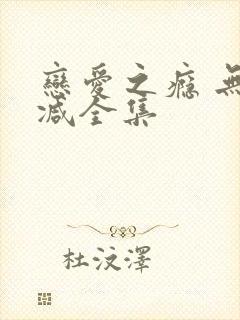 戀愛之癮 無
减全集
杜汶澤